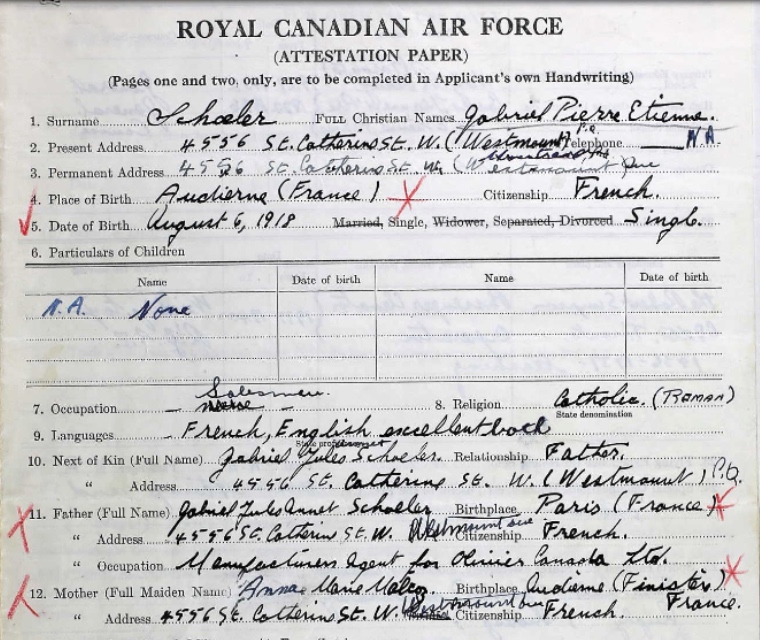 ROYAL CANADIAN AIR FORCE
(ATTESTATION PAPER)
(Pages one and two, only, are to be completed in Applicant's own Handwriting)
1. Surname Schoeler FULL Christian Names Gabriel Pierre Etienne.
2. Present Address 4556 St. Catherine St. W. (Westmount) P.Q. Telephone N.A.
3. Permanent Address 4556 St. Catherine St. W. (Westmount)
4. Place of Birth Audierne (France) Citizenship French.
5. Date of Birth August 6, 1918 Married, Single, Widower, Separated, Divorced Single.
6. Particulars of Children
Name Date of birth Name Date of birth
N.A. None
Salesman
7. Occupation 8. Religion Catholic. (ROMAN)
State denomination
9. Languages French, English excellent both
10. Next of Kin (Full Name) Gabriel Jules Schoeler. Relationship Father.
" Address 4556 St. Catherine St. W. (Westmount) P.Q.
11. Father (Full Name) Gabriel Jules Schoeler Birthplace Paris (France)
" Address 4556 St. Catherine St. W. Westmount Citizenship French.
" Occupation Manufacturers Agent for Canada Ltd.
12. Mother (Full Maiden Name) Anna Marie Birthplace Audierne (Finistère) France.
" Address 4556 St. Catherine St. W. Westmount Citizenship French